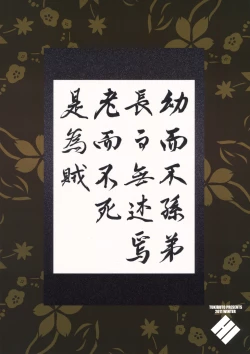 幼而不孫弟
長而無述焉
老而不死
是為賊
TSUKIMIYA PRESENTS
2011 WINTER